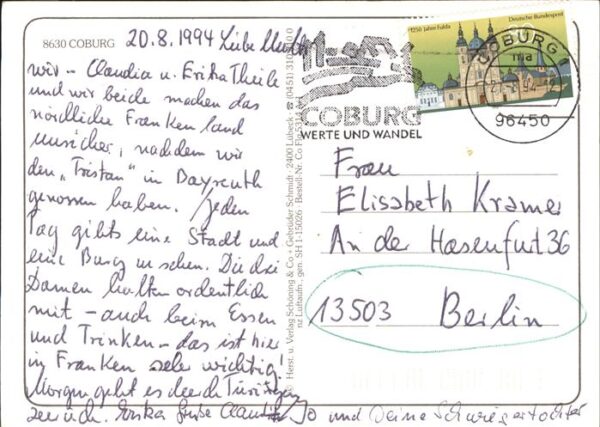 8630 COBURG
20.8.1994 Liebe Mutti
wir - Claudia u. Erika Theile
und wir beide machen das
nördliche Frankenland
unsicher, nachdem wir
den „Tristan" in Bayreuth
genossen haben. Jeden
Tag gibts eine Stadt und
eine Burg zu sehen. Die drei
Damen halten ordentlich
mit - auch beim Essen
und Trinken - das ist hier
in Franken sehr wichtig!
Morgen geht es durch Thüringen
zurück. Erika Grüße Claudia Jo und Deine Schwiegertochter
© Herst. u. Verlag Schöning & Co + Gebrüder Schmidt · 2400 Lübeck · ☎ (0451) 31
1250 Jahre Fulda
Deutsche Bundespost
COBURG
WERTE UND WANDEL
COBURG
ma
94
96450
Frau
Elisabeth Kramer
An der Hasenfurt 36
13503 Berlin